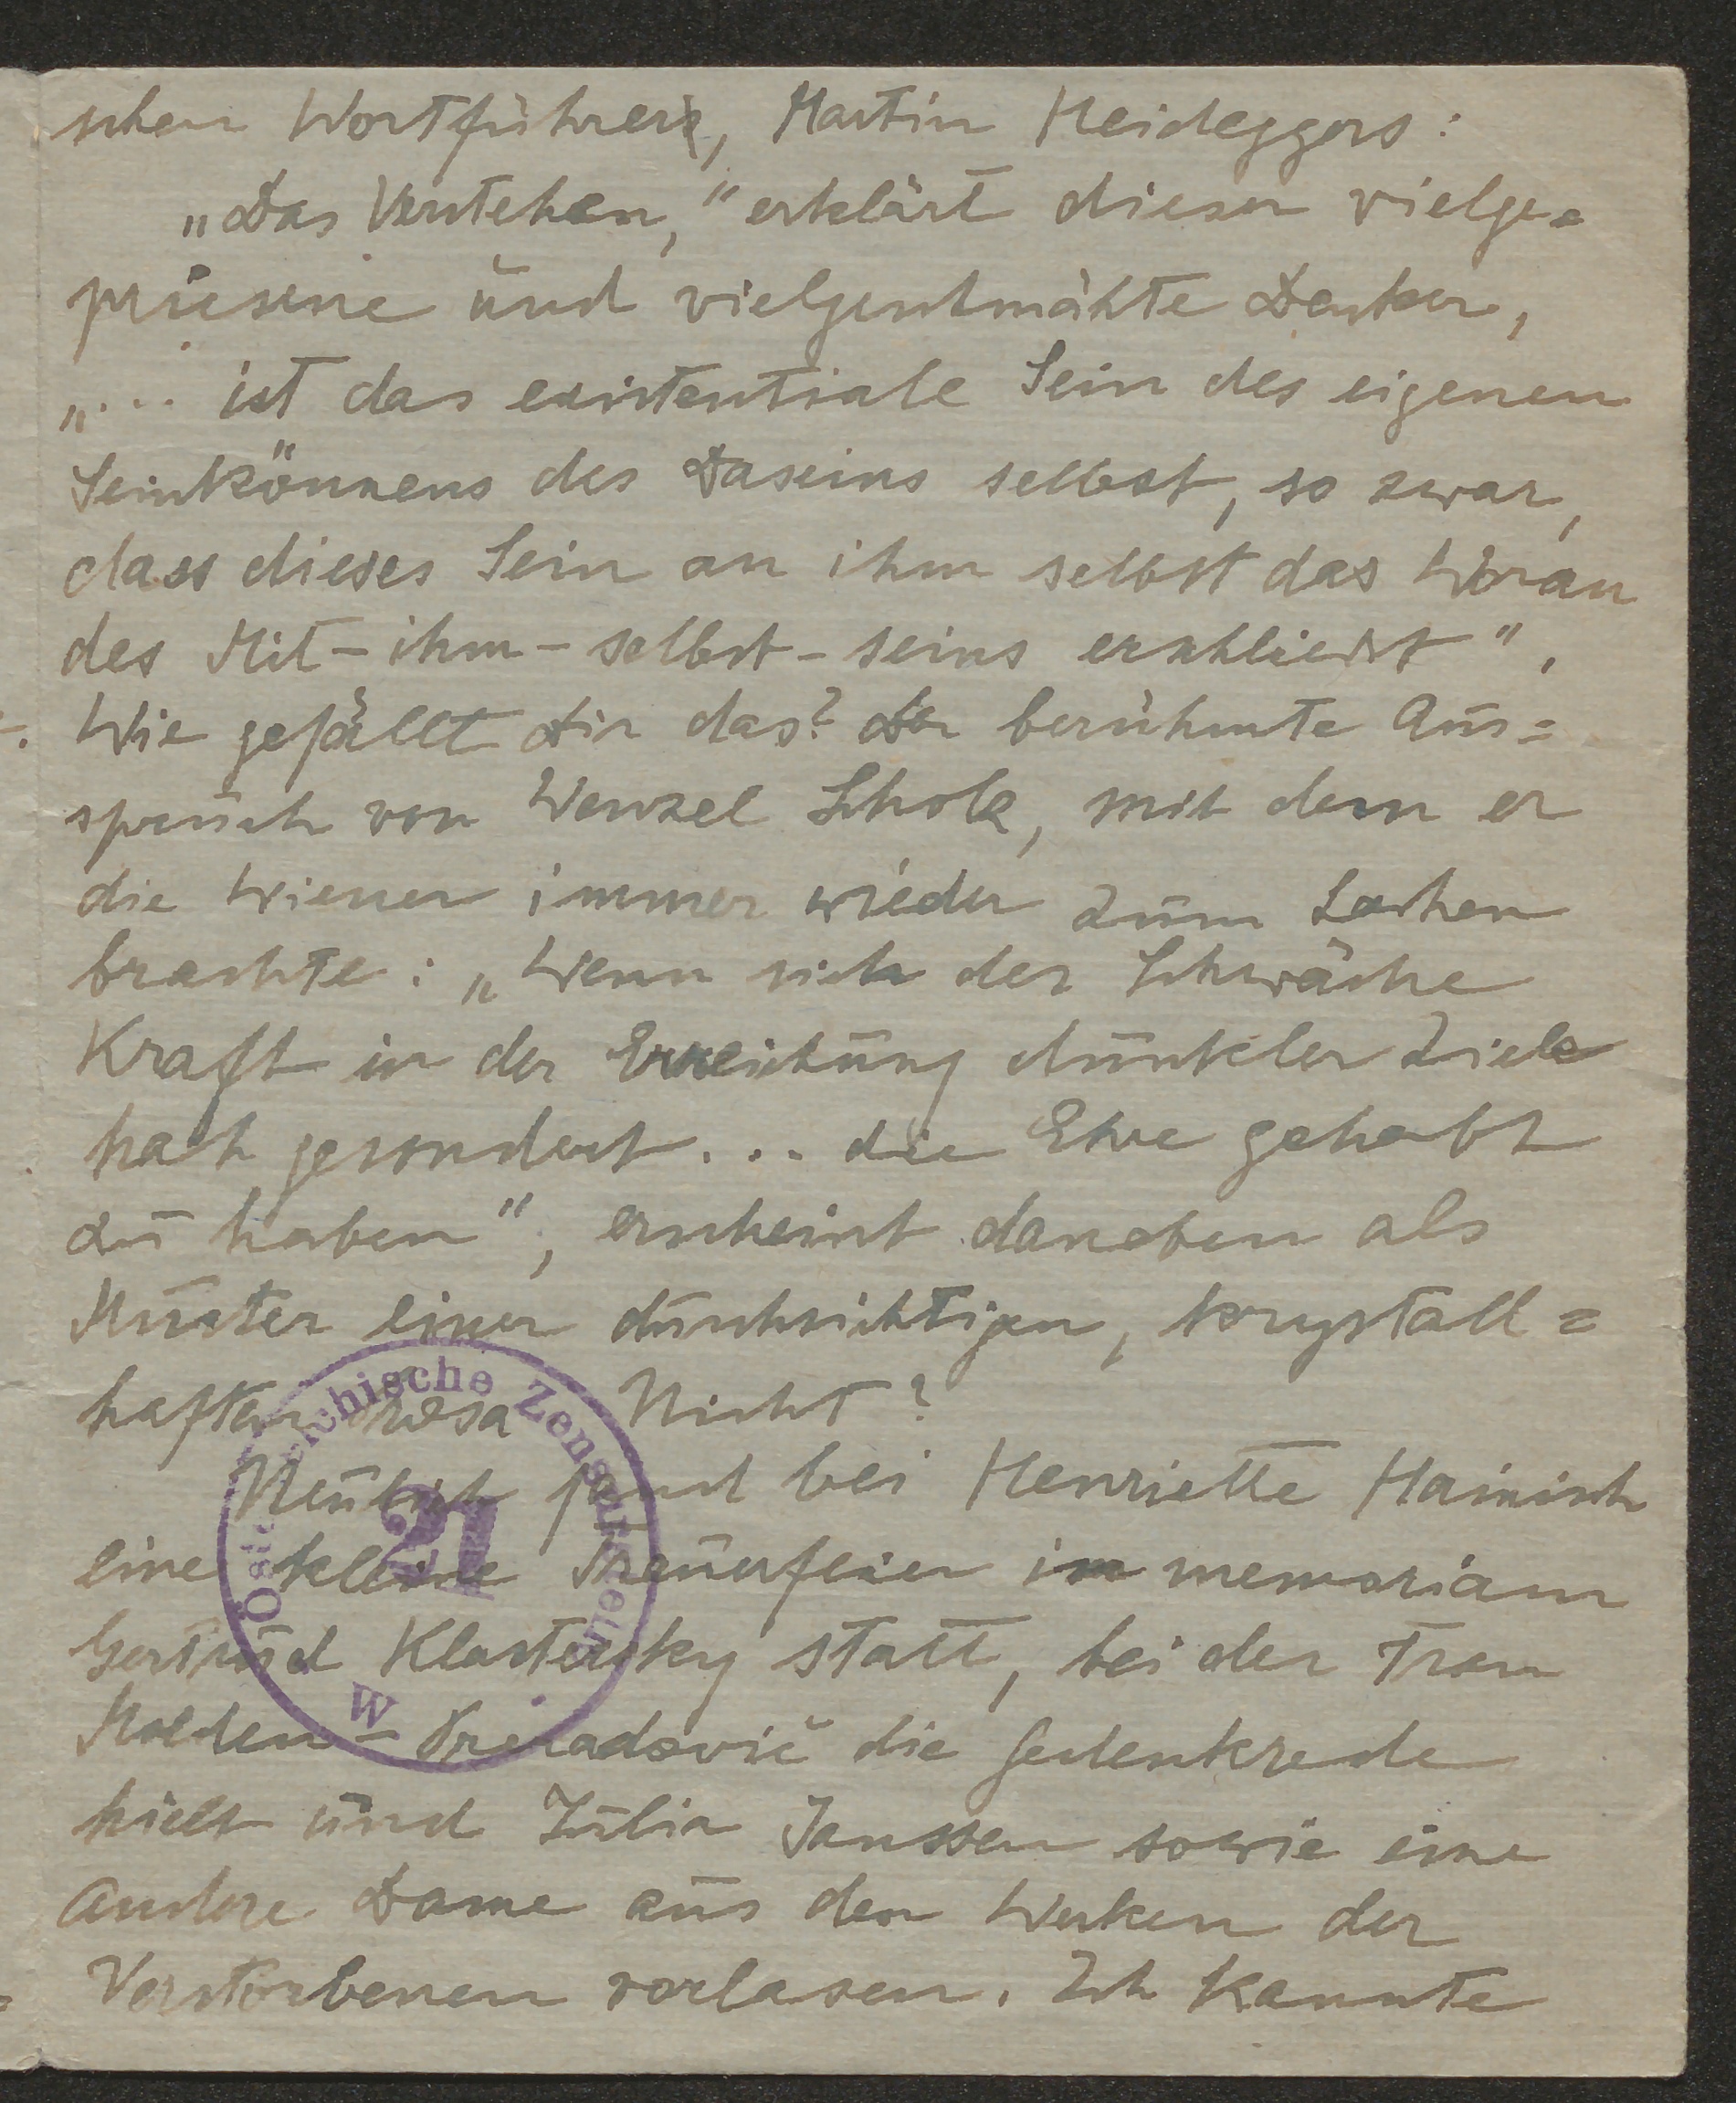 schen Wortführers, Martin Heideggers:
„Das Verstehen," erklärt dieser vielge=
priesene und vielgeschmähte Denker,
„... ist das existentiale Sein des eigenen
Seinkönnens des Daseins selbst, so zwar,
dass dieses Sein an ihm selbst das Woran
des Mit-ihm-selbst-seins erschliesst".
Wie gefällt Dir das? Der berühmte Aus=
spruch von Wenzel Scholz, mit dem er
die Wiener immer wieder zum Lachen
brachte: „Wenn sich der Schwäche
Kraft in der Erreichung dunkler Ziele
hat gesondert ... die Ehre gehabt
zu haben", erscheint daneben als
Muster einer durchsichtigen, krystall=
haften Prosa. Nicht?
Neulich fand bei Henriette Hainisch
eine kleine Trauerfeier in memoriam
Gertrud Klastersky statt, bei der Frau
Molden-Preradovič die Gedenkrede
hielt und Julia Janssen sowie eine
andere Dame aus den Werken der
Verstorbenen vorlasen. Ich kannte
Österreichische Zensurstelle
W
21